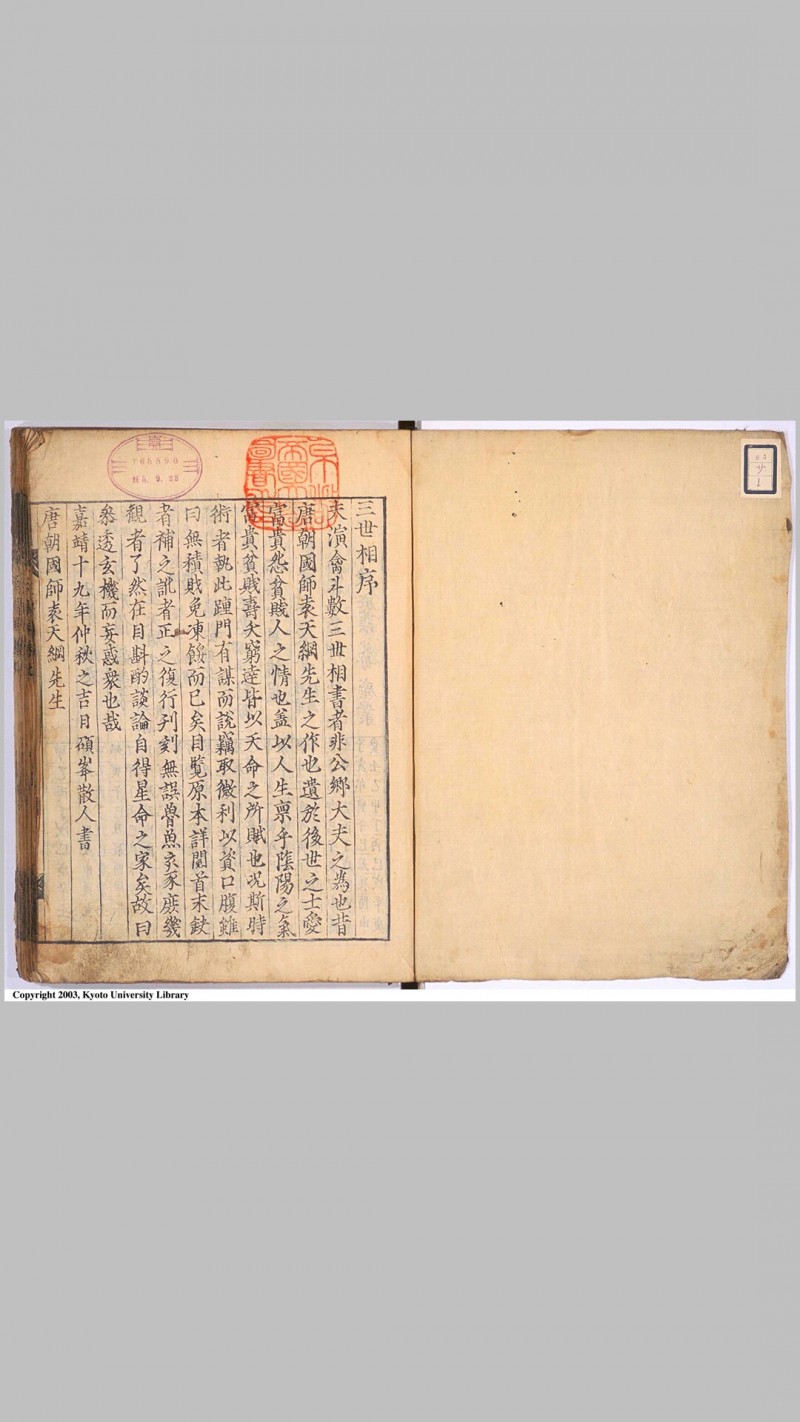 三世相序
夫演禽斗數三世相書者非公卿大夫之為也昔
唐朝國師袁天綱先生之作也遺於後世之士愛
富貴怨貧賤人之情也盖以人生禀乎陰陽之氣
富貴貧賤壽夭窮達皆以天命之所賦也况斯時
術者執此踵門有謀而說竊取微利以資口腹雖
曰無積賎免凍餒而已矣目覧原本詳閱首末缺
者補之訛者正之復行刋刻無誤魯魚亥豕庶幾
觀者了然在目斟酌談論自得星命之家矣故曰
叅透玄機而妄惑衆也哉
嘉靖十九年仲秋之吉日碩峯散人書
唐朝國師袁天綱先生
Copyright 2003, Kyoto University Library